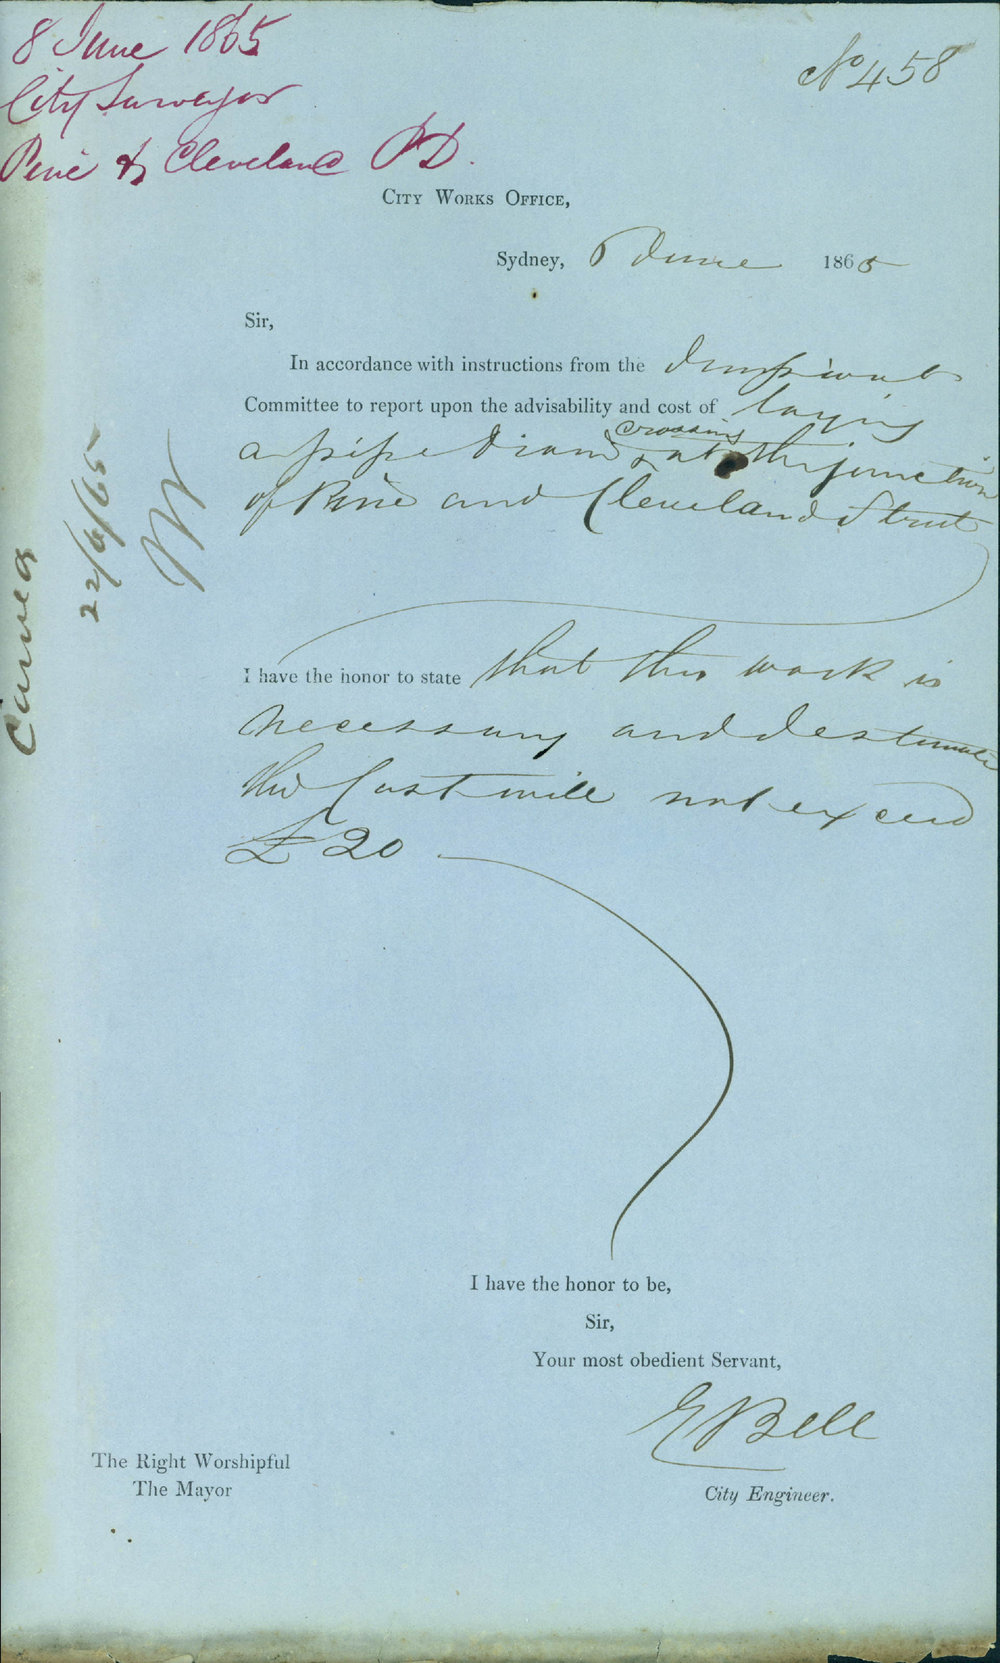 8 June 1865
City Surveyor
Pine & Cleveland PD.
No 458
CITY WORKS OFFICE,
Sydney, 8 June 1865
Sir,
In accordance with instructions from the Improvement
Committee to report upon the advisability and cost of laying
a pipe drain & crossing at the junction
of Pine and Cleveland Street
I have the honor to state that this work is
necessary and I estimate
the Cost will not exceed
£20
I have the honor to be,
Sir,
Your most obedient Servant,
E Bell
City Engineer.
The Right Worshipful
The Mayor
Carried
22/6/65